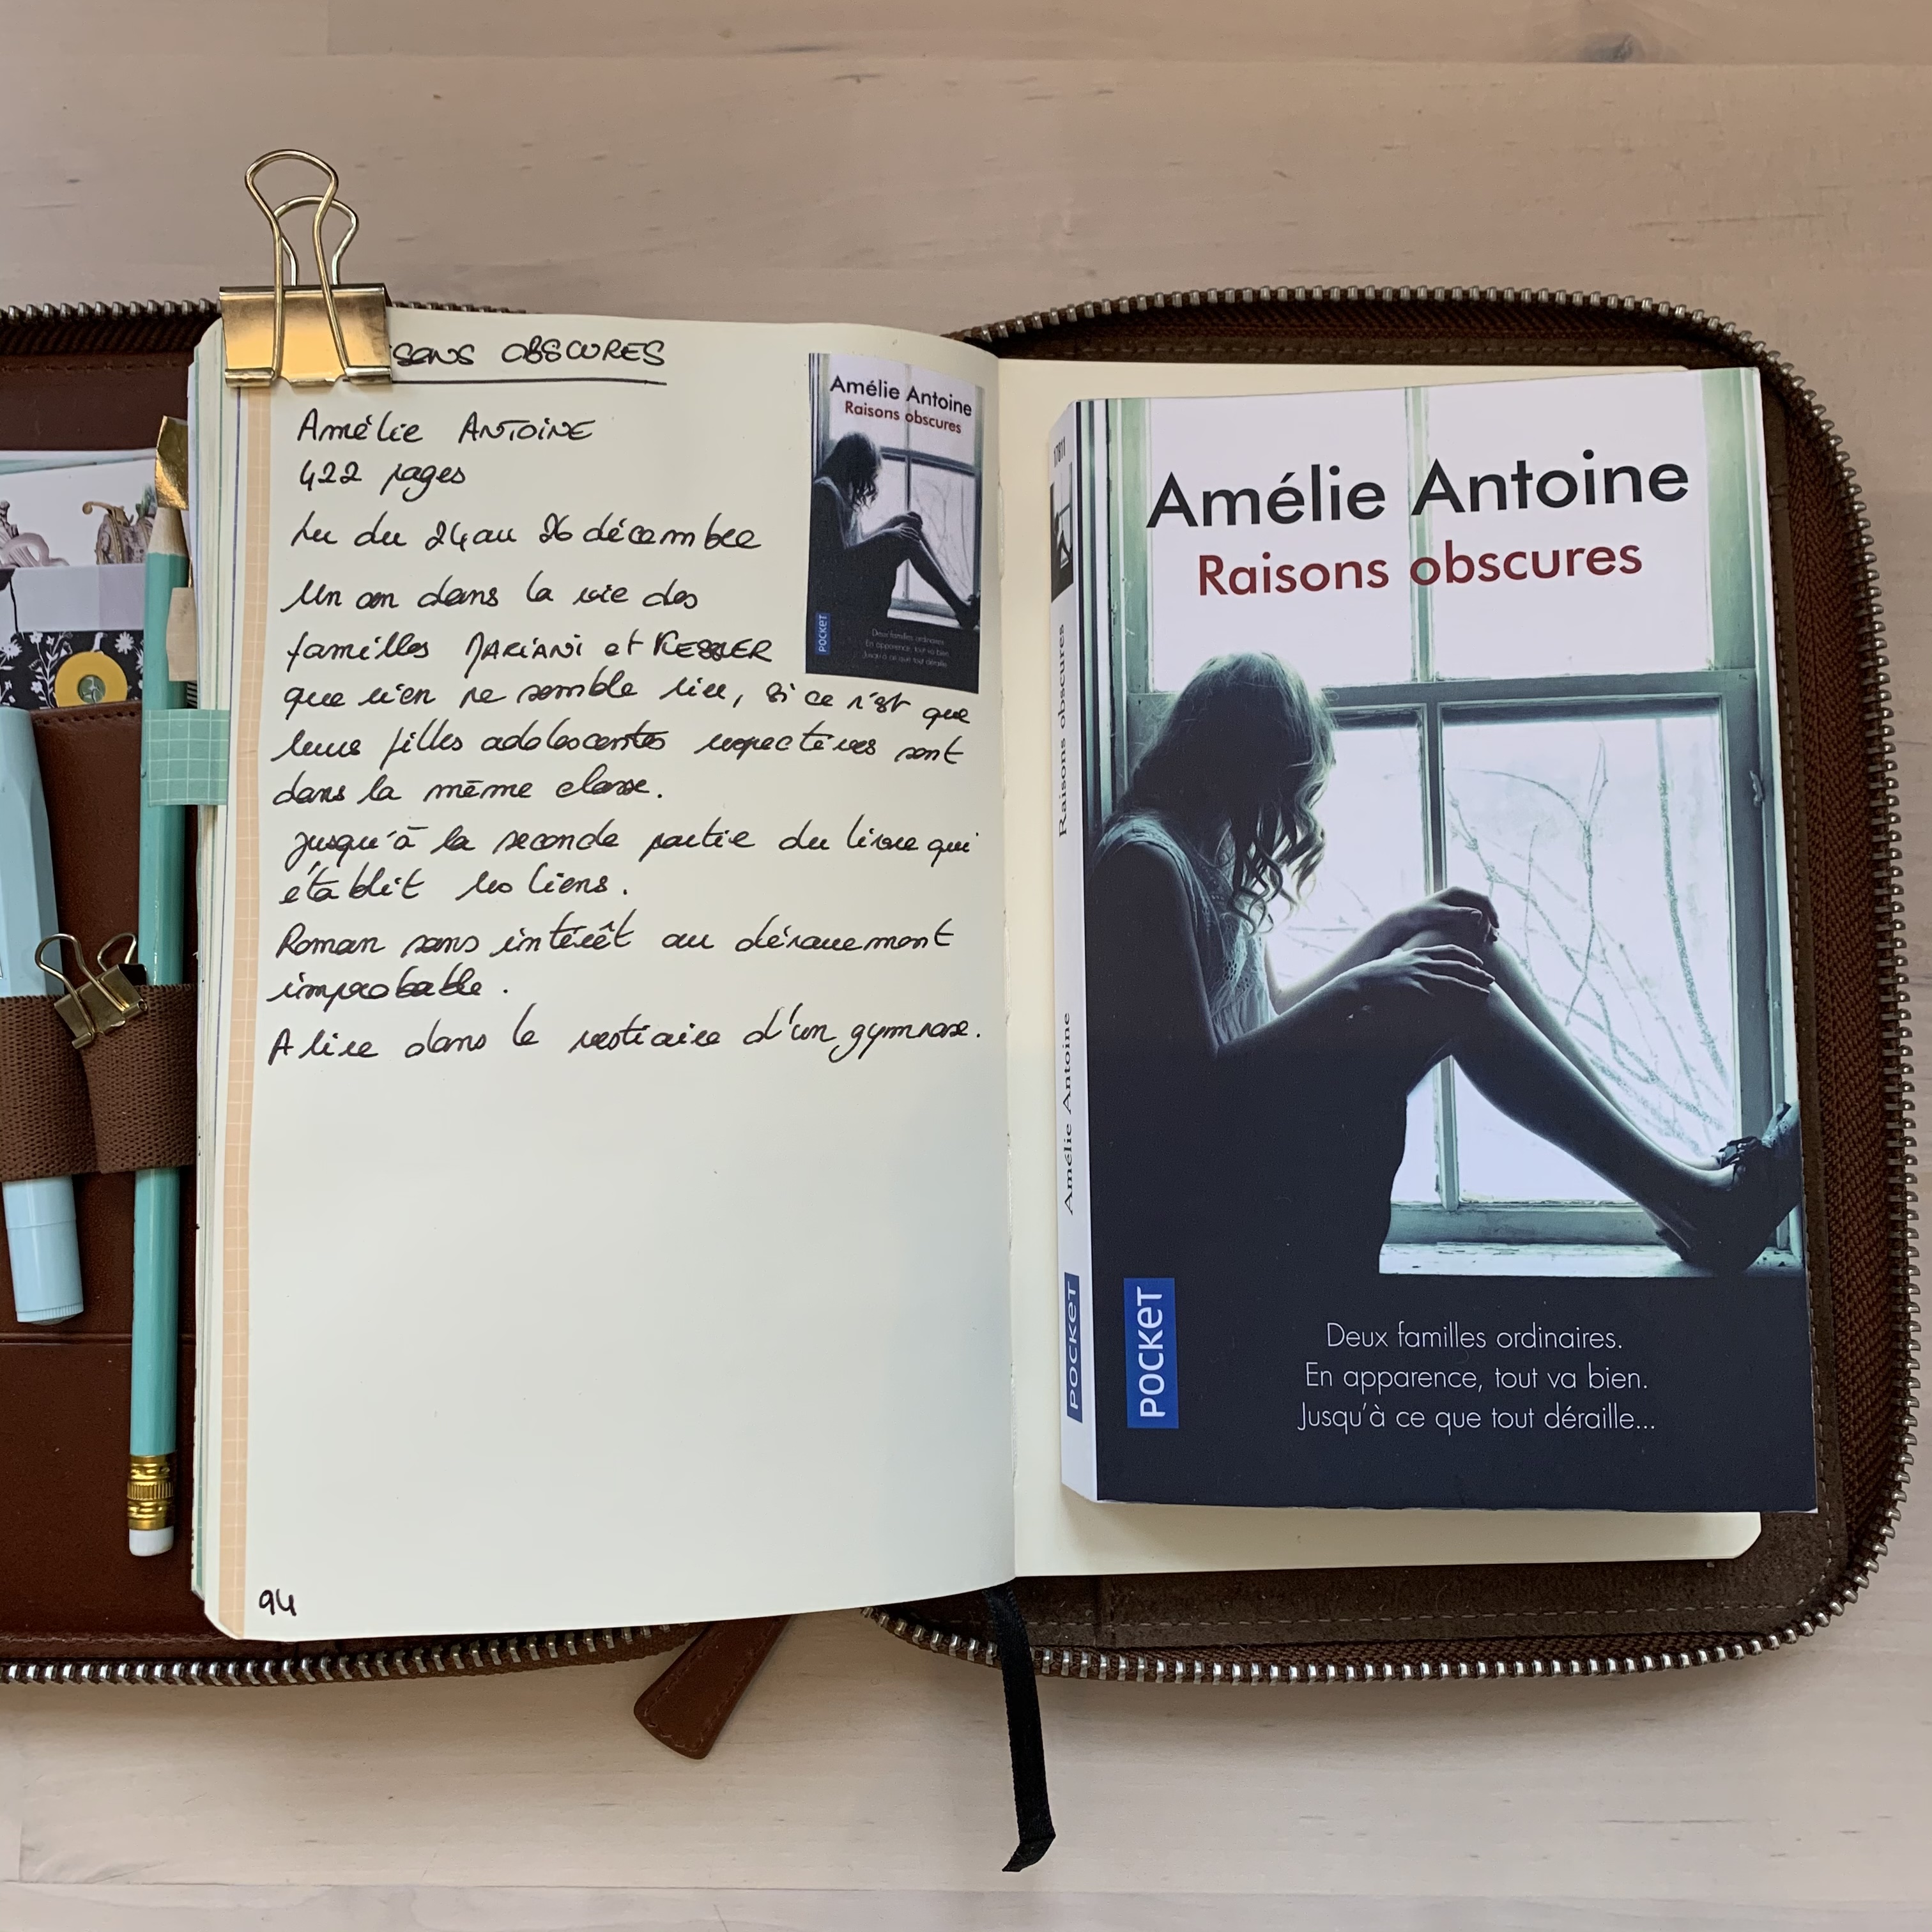 SONS OBSCURES
Amélie ANTOINE
422 pages
Lu du 24 au 26 décembre
Un an dans la vie des
familles MARIANI et KESSLER
que rien ne semble lier, si ce n'est que
leurs filles adolescentes respectives sont
dans la même classe.
Jusqu'à la seconde partie du livre qui
établit les liens.
Roman sans intérêt au dénouement
improbable.
A lire dans le vestiaire d'un gymnase.
94
Amélie Antoine
Raisons obscures
POCKET
Deux familles ordinaires.
En apparence, tout va bien.
Jusqu'à ce que tout déraille...
17811
Raisons obscures
Amélie Antoine
POCKET
Amélie Antoine
Raisons obscures
POCKET
Deux familles ordinaires.
En apparence, tout va bien.
Jusqu'à ce que tout déraille...